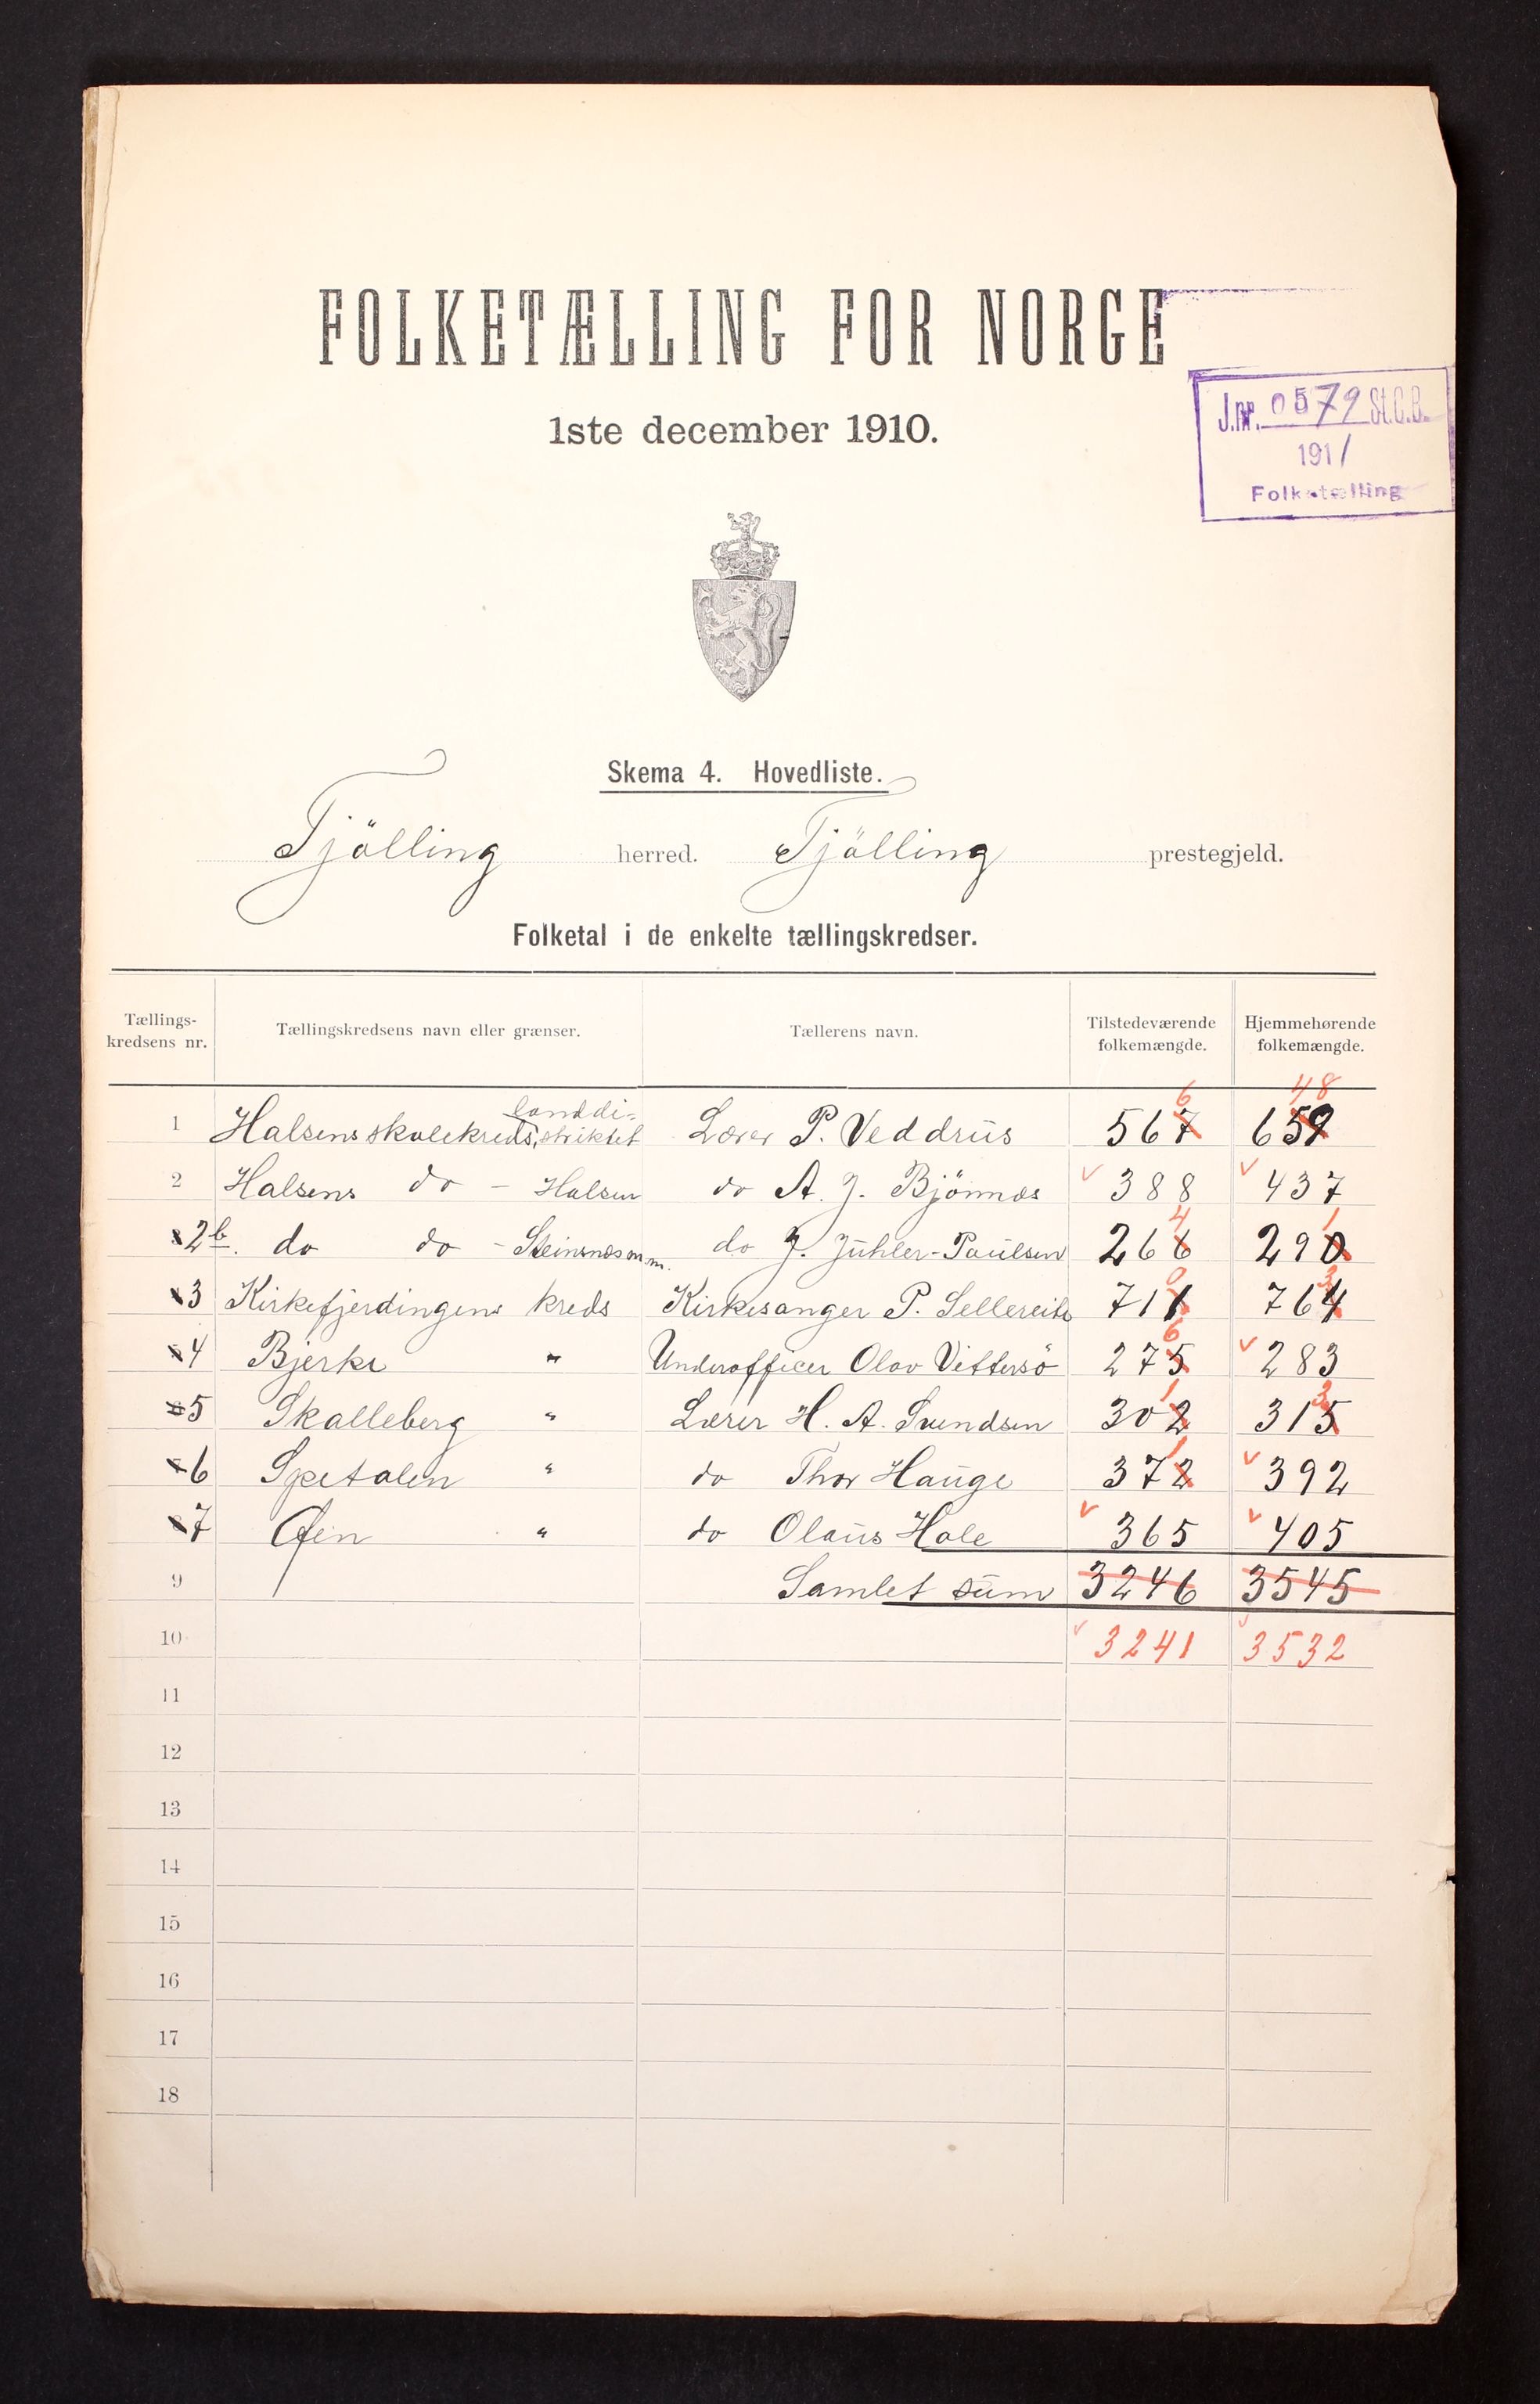 FOLKETÆLLING FOR NORGE
1ste december 1910.
J.nr. 0579 St.C.B.
1911
Folketælling
Skema 4. Hovedliste.
Tjölling herred. Tjölling prestegjeld.
Folketal i de enkelte tællingskredser.
Tællings-kredsens nr. Tællingskredsens navn eller grænser. Tællerens navn. Tilstedeværende folkemængde. Hjemmehørende folkemængde.
6 48
landdi-
1 Halsens skolekreds, striktet Lærer P. Veddrus 567 659
2 Halsens do - Halsen do A. J. Bjönnes 388 437
4 1
2b. do do - Steinsnes m.m. do J. Juhler-Paulsen 266 290
0 3
3 Kirkefjerdingens kreds Kirkesanger P. Sellereite 711 764
6
4 Bjerke " Underofficer Olav Vittersö 275 283
1 3
5 Skalleberg " Lærer H. A. Svendsen 302 315
1
6 Spetalen " do Thor Hauge 372 392
7 " do Olaus Hole 365 405
9 Samlet sum 3246 3545
10 3241 3532
11
12
13
14
15
16
17
18